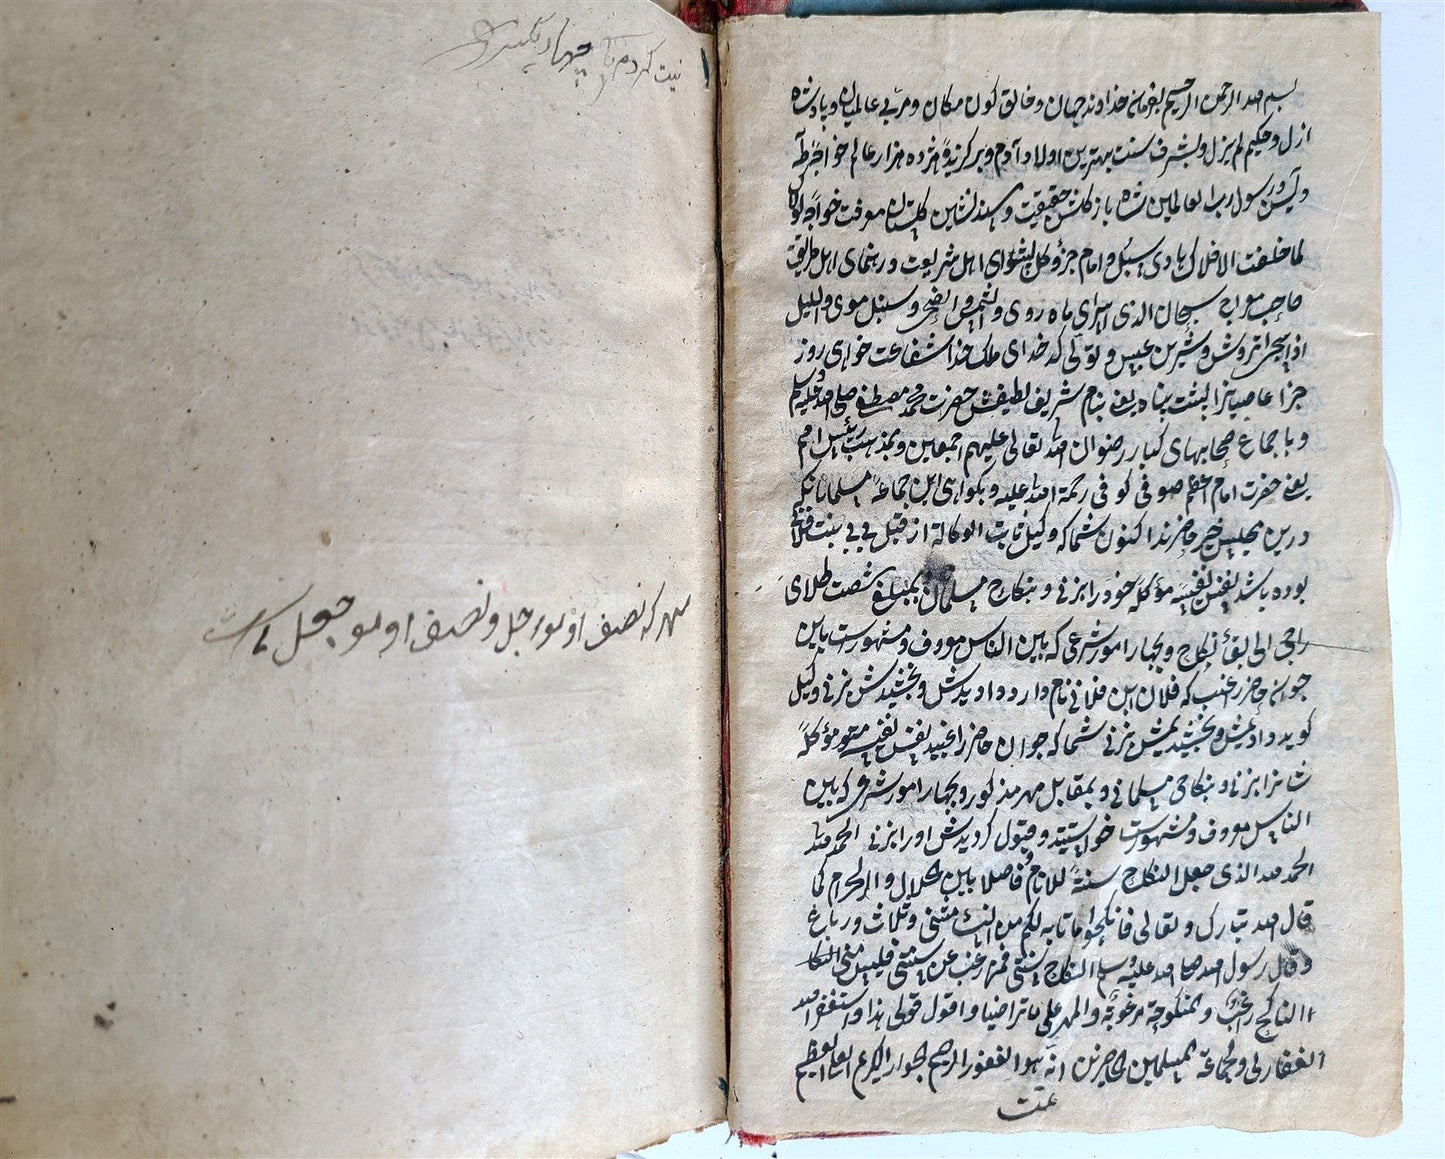 بسم الله الرحمن الرحیم بفرمان خداوند جهان و خالق کون و مکان و مربی عالمیان و پادشاه
ازل و حکیم لم یزل و بشرف سنت بهترین اولاد آدم و برگزیدهٔ هژده هزار عالم خواجهٔ طه
و یٰسٓ و رسول رب العالمین شاه باز گلشن حقیقیت و مسندنشین معرفت خواجهٔ لولاک
لما خلقت الافلاک هادی سبُل و امام جزؤ و کل پیشوای اهل شریعت و رهنمای اهل طریقت
صاحب سبحان الذی اسرای ماه روی والشمس والضحی و سنبل موی واللیل
اذا سجی و شیرین عبس و تولی که خدای ملک خدا شفاعت خواه روز
جزا عاصیانرا پشت پناه یعنے بنام شریف لطیفش حضرت محمد مصطفے صلی الله علیه وسلم
و باجماع صحابهای کبار رضوان الله تعالی علیهم اجمعین و بمذهب رئیس امم
یعنے حضرت امام اعظم صوفی کوفی رحمة الله علیه و بگواهی این جماعهٔ مسلمانانیکه
درین مجلس خیر حاضرند اکنون شما که وکیل ثابت الوکالة از قبل بی بی بنت فلانے
بوده باشد نفس نفیسه مؤکله خود را بزنی و بنکاح مسلمانی بمبلغ شصت طلای
راجی الی بقأ نکاح و بچهار امور شرعی که بین الناس معروف و مشهورست باین
جوان حاضر که فلان ابن فلانے نام دارد دادیدش و بخشیدش بزنی وکیل
گوید دادیمش و بخشیدیمش بزنے شما که جوان حاضر نفس نفیسه مؤکلهٔ
شانرا بزنی و بنکاح مسلمانے و بمقابل مهر مذکور و بچهار امور شرعی که بین
الناس معروف و مشهورست خواستید و قبول کردیدش او را بزنی الحمدلله
الحمد لله الذی جعل النکاح سنةً للانام و فاصلا بین الحلال و الحرام کما
قال الله تبارک و تعالی فانکحوا ما طاب لکم من النسأ مثنی و ثلاث و رباع
و قال رسول الله صلے الله علیه وسلم النکاح سنتی فمن رغب عن سنتی فلیس منی النکاح
الناکح راغبٌ و المنکوحة مرغوبةٌ و المهر علی ما تراضیا و اقول قولی هذا و استغفر الله
الغفار لی و لجماعة المسلمین الحاضرین انه هوالغفور الرحیم الجواد الکریم العلی العظیم
تمت
نیت کردم تا چهار
مهر که نصف او موءجل و نصف او معجل است